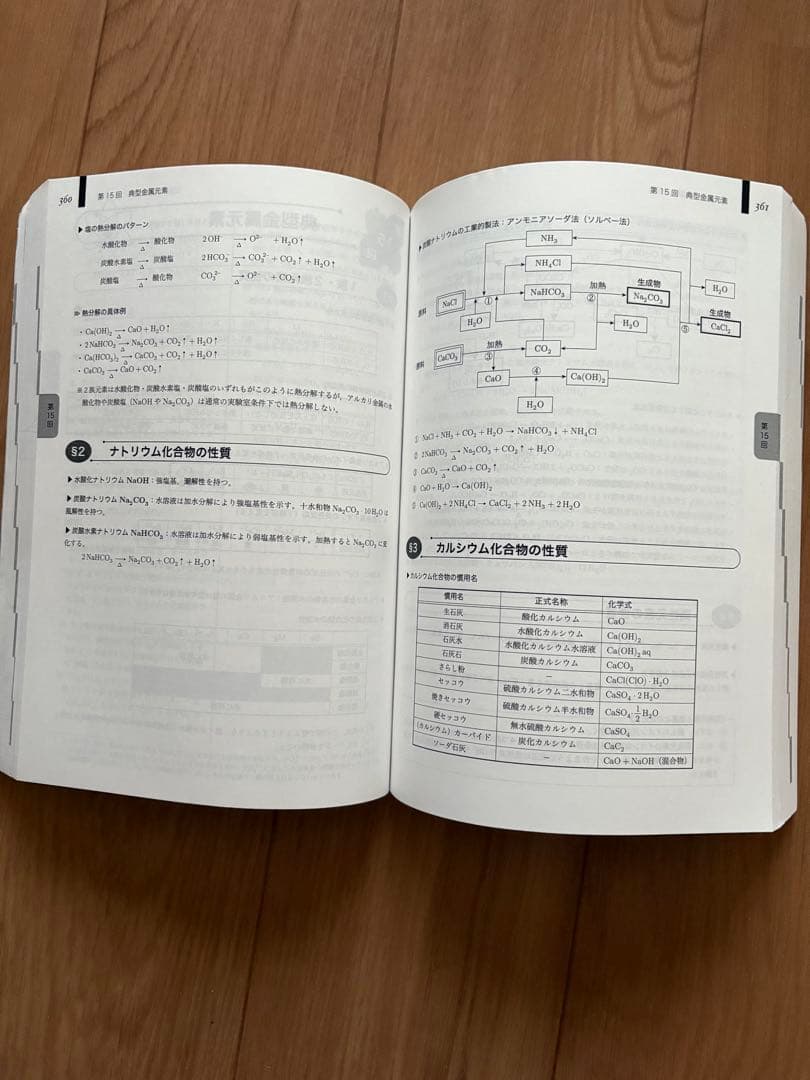 360
第15回 典型金属元素
▶塩の熱分解のパターン
水酸化物 →Δ 酸化物 2OH⁻ →Δ O²⁻ + H₂O↑
炭酸水素塩 →Δ 炭酸塩 2HCO₃⁻ →Δ CO₃²⁻ + CO₂↑ + H₂O↑
炭酸塩 →Δ 酸化物 CO₃²⁻ →Δ O²⁻ + CO₂↑
≫ 熱分解の具体例
・Ca(OH)₂ →Δ CaO + H₂O↑
・2NaHCO₃ →Δ Na₂CO₃ + CO₂↑ + H₂O↑
・Ca(HCO₃)₂ →Δ CaCO₃ + CO₂↑ + H₂O↑
・CaCO₃ →Δ CaO + CO₂↑
※2族元素は水酸化物・炭酸水素塩・炭酸塩のいずれもがこのように熱分解するが，アルカリ金属の水
酸化物や炭酸塩（NaOH や Na₂CO₃）は通常の実験室条件下では熱分解しない。
第15回
§2 ナトリウム化合物の性質
▶水酸化ナトリウム NaOH：強塩基，潮解性を持つ。
▶炭酸ナトリウム Na₂CO₃：水溶液は加水分解により強塩基性を示す。十水和物 Na₂CO₃・10H₂O は
風解性を持つ。
▶炭酸水素ナトリウム NaHCO₃：水溶液は加水分解により弱塩基性を示す。加熱すると Na₂CO₃ に変
化する。
2NaHCO₃ →Δ Na₂CO₃ + CO₂↑ + H₂O↑
第15回 典型金属元素
361
▶炭酸ナトリウムの工業的製法：アンモニアソーダ法（ソルベー法）
NH₃
NH₄Cl
原料
NaCl
①
NaHCO₃
加熱
②
生成物
Na₂CO₃
H₂O
H₂O
H₂O
生成物
CaCl₂
⑤
原料
CaCO₃
加熱
③
CO₂
CaO
④
Ca(OH)₂
H₂O
① NaCl + NH₃ + CO₂ + H₂O → NaHCO₃↓ + NH₄Cl
② 2NaHCO₃ →Δ Na₂CO₃ + CO₂↑ + H₂O
③ CaCO₃ →Δ CaO + CO₂↑
④ CaO + H₂O → Ca(OH)₂
⑤ Ca(OH)₂ + 2NH₄Cl → CaCl₂ + 2NH₃ + 2H₂O
第15回
§3 カルシウム化合物の性質
▶カルシウム化合物の慣用名
慣用名 正式名称 化学式
生石灰 酸化カルシウム CaO
消石灰 水酸化カルシウム Ca(OH)₂
石灰水 水酸化カルシウム水溶液 Ca(OH)₂ aq
石灰石 炭酸カルシウム CaCO₃
さらし粉 － CaCl(ClO)・H₂O
セッコウ 硫酸カルシウム二水和物 CaSO₄・2H₂O
焼きセッコウ 硫酸カルシウム半水和物 CaSO₄・1/2H₂O
硬セッコウ 無水硫酸カルシウム CaSO₄
（カルシウム）カーバイド 炭化カルシウム CaC₂
ソーダ石灰 － CaO + NaOH（混合物）